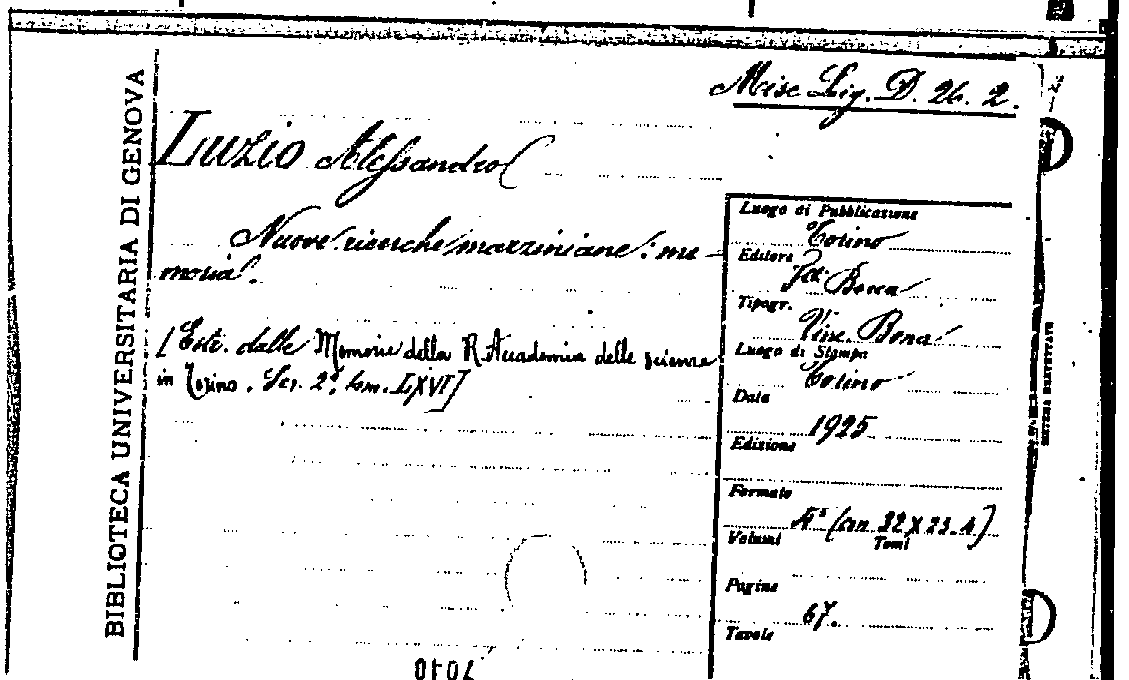 Misc. Lig. D. 26. 2.
BIBLIOTECA UNIVERSITARIA DI GENOVA
Luzio Alessandro
Nuove ricerche mazziniane: me-
moria.
[Estr. dalle Memorie della R. Accademia delle scienze
in Torino. Ser. 2ª, tom. LXVI]
Luogo di Pubblicazione
Torino
Editore
F.lli Bocca
Tipogr.
Vinc. Bona
Luogo di Stampa
Torino
Data
1925
Edizione
Formato
4° (cm 32 X 23.4)
Volumi Tomi
Pagine
67.
Tavole
7040